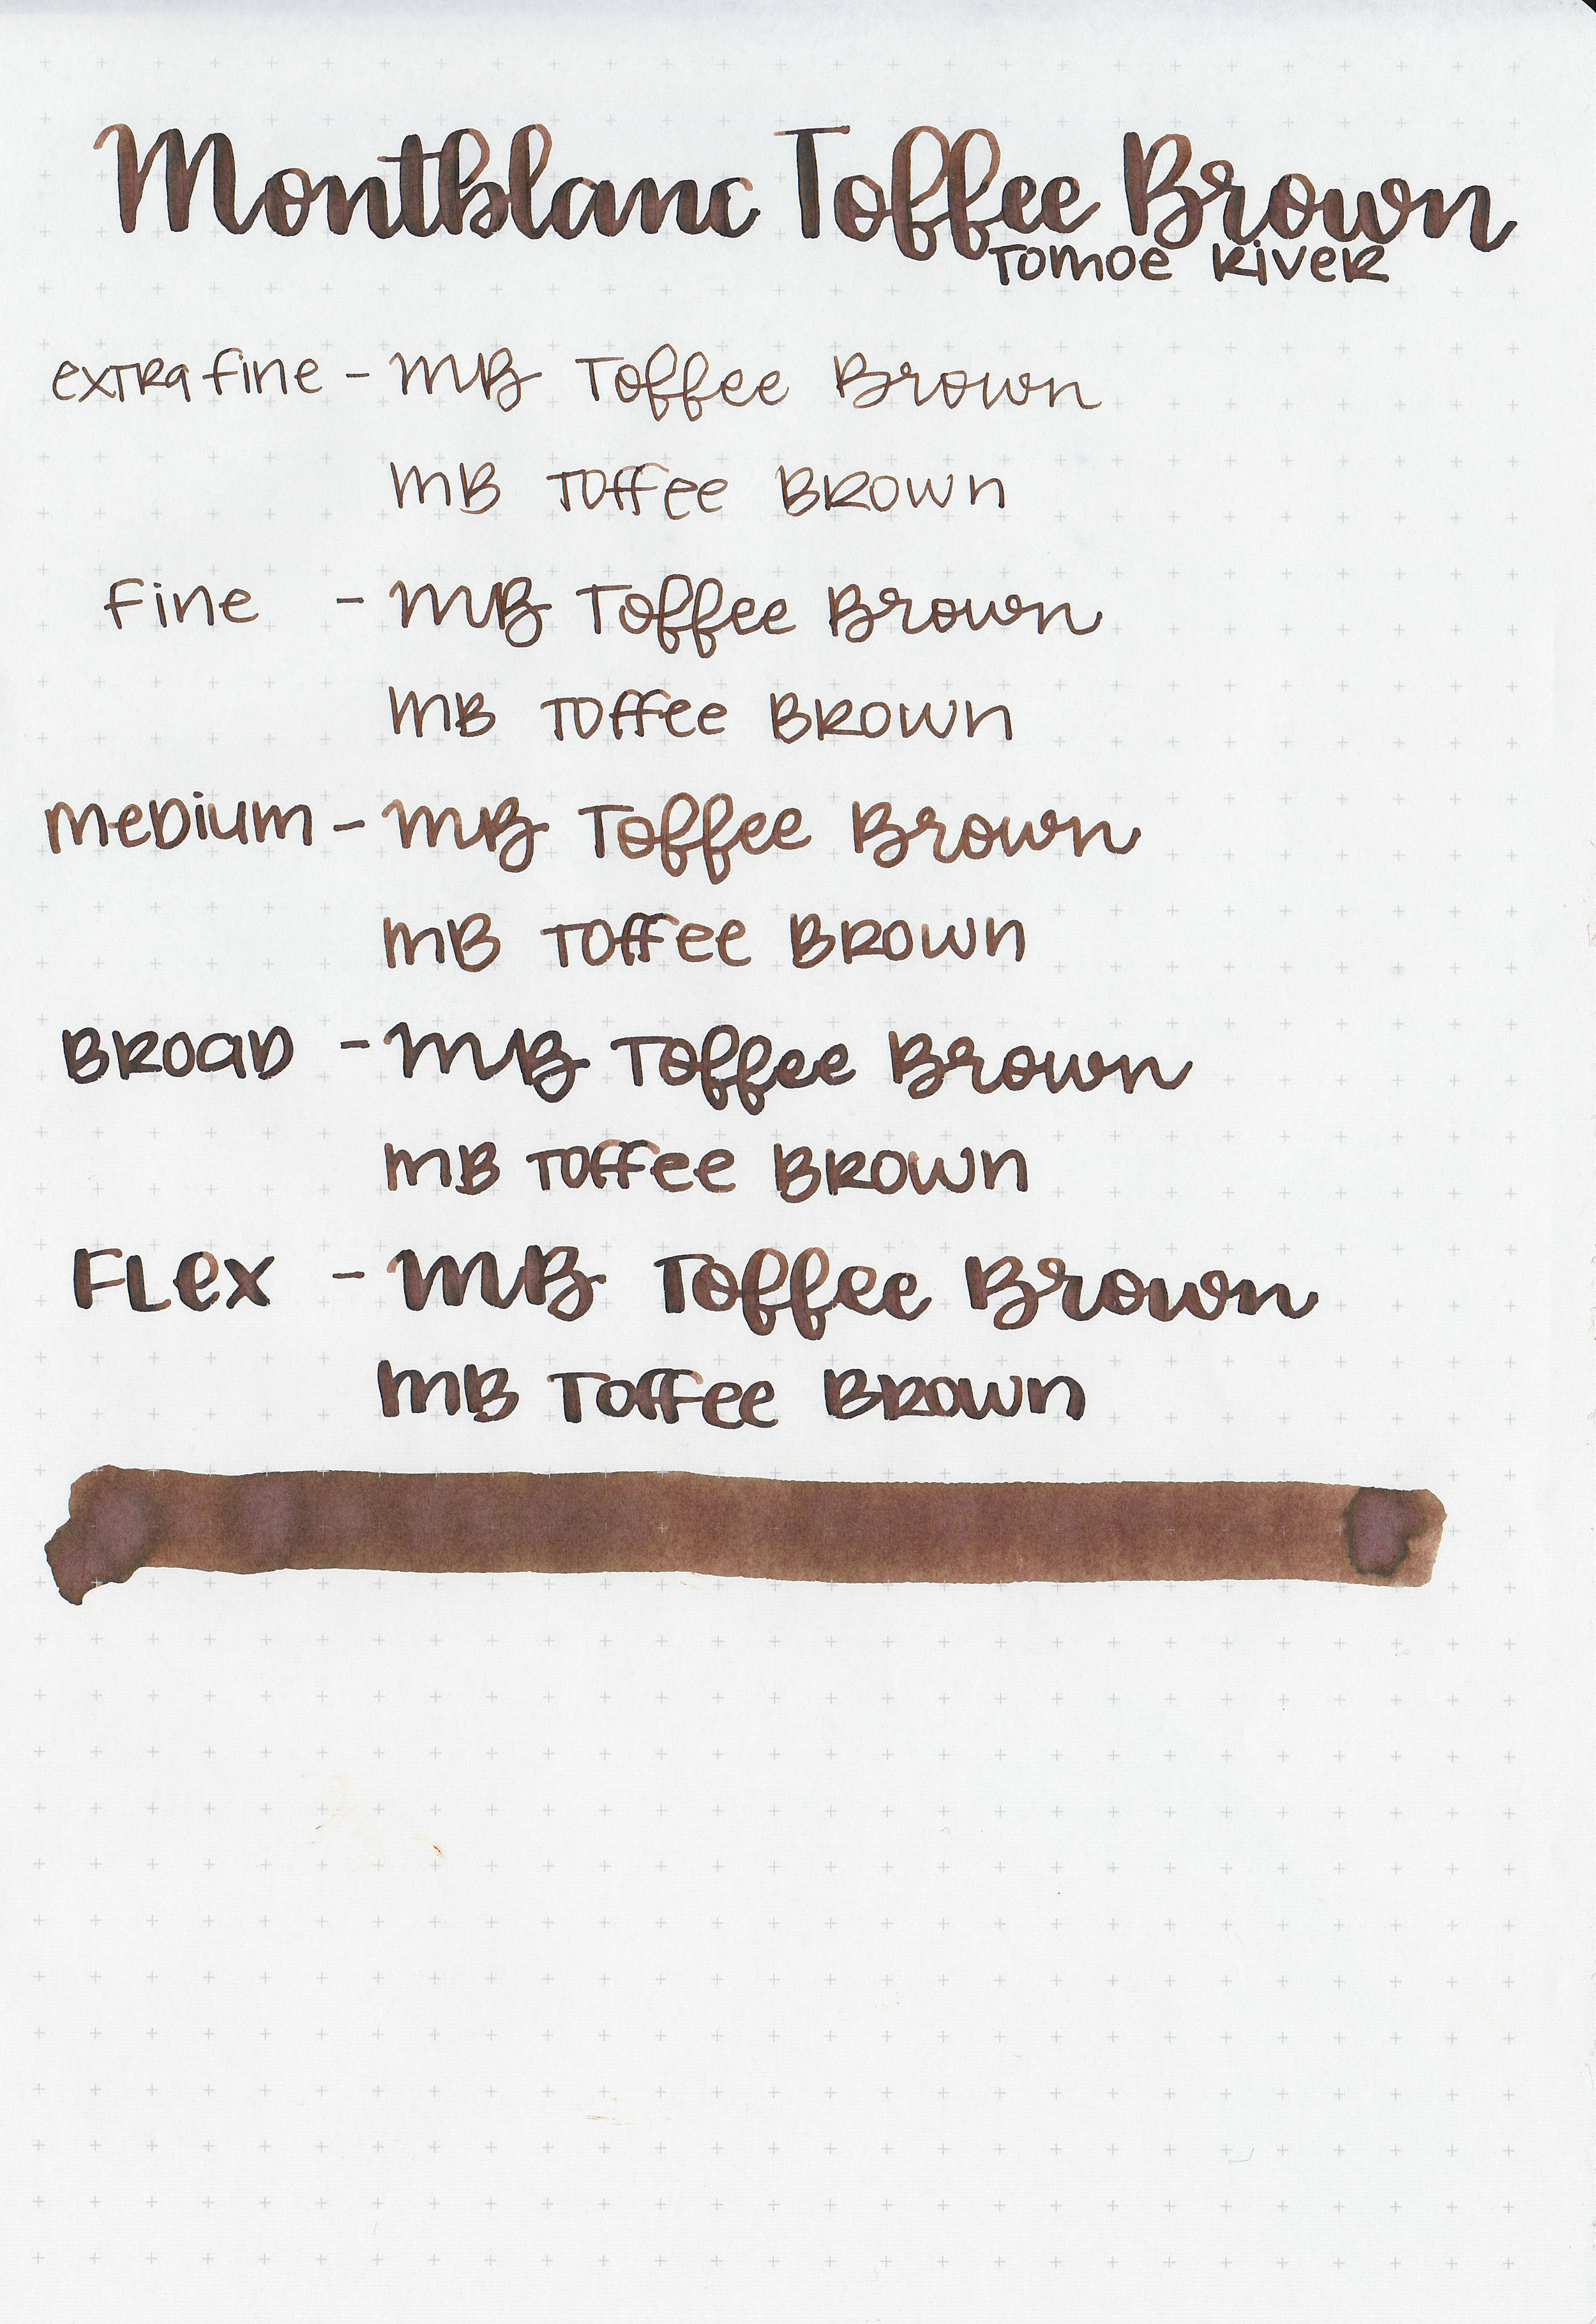 Montblanc Toffee Brown
Tomoe River
extra fine - MB Toffee Brown
MB Toffee Brown
fine - MB Toffee Brown
MB Toffee Brown
medium - MB Toffee Brown
MB Toffee Brown
Broad - MB Toffee Brown
MB Toffee Brown
Flex - MB Toffee Brown
MB Toffee Brown